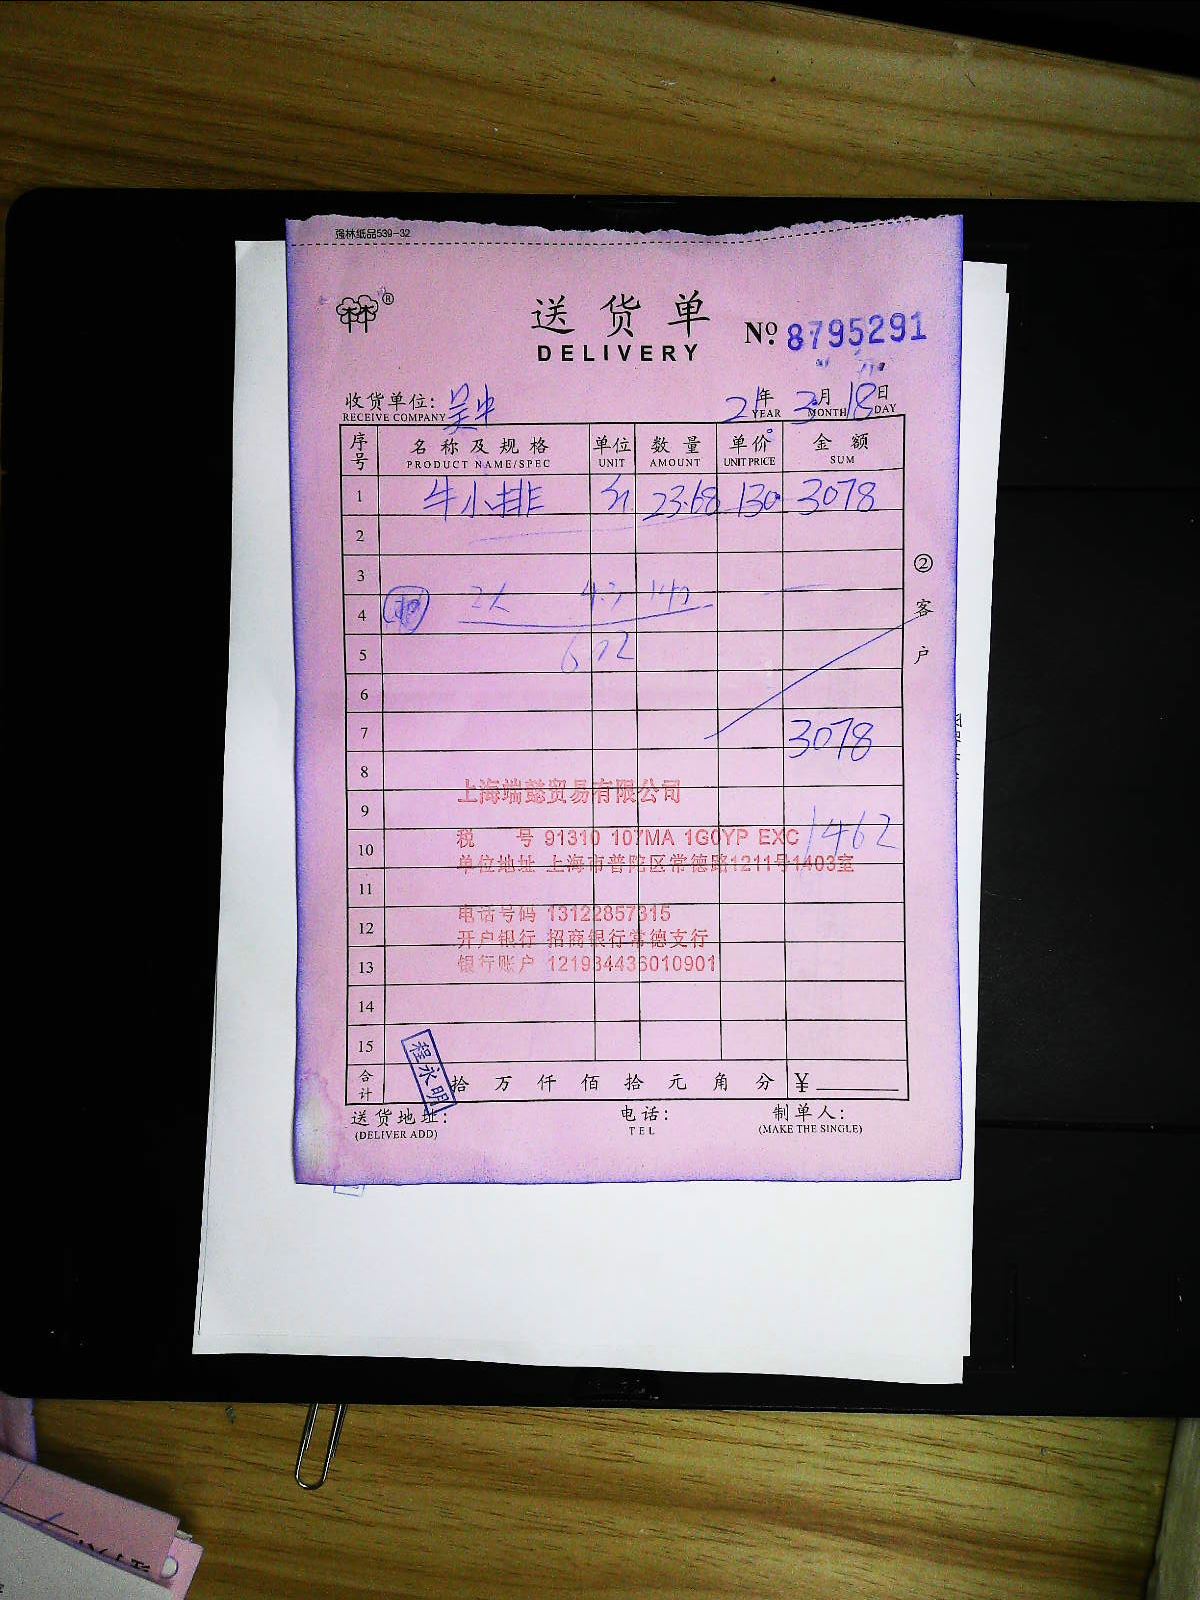 强林纸品539-32
林林®
送货单
DELIVERY
No. 8795291
收货单位: 吴中 21年 3月 18日
RECEIVE COMPANY YEAR MONTH DAY
序号 名称及规格 单位 数量 单价 金额
PRODUCT NAME/SPEC UNIT AMOUNT UNIT PRICE SUM
1 牛小排 23.68 130 3078
2
3
4
5 602
6
7 3078
8
上海端懿贸易有限公司
9
税 号 91310 107MA 1G0YP EXC
10 1462
单位地址 上海市普陀区常德路1211号1403室
11
电话号码 13122857315
12
开户银行 招商银行常德支行
13
银行账户 121934436010901
14
15
② 客户
合计 拾 万 仟 佰 拾 元 角 分 ¥
程永明
送货地址: 电话: 制单人:
(DELIVER ADD) TEL (MAKE THE SINGLE)